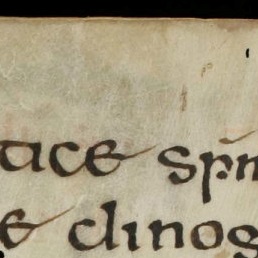 tice spm
e clinog